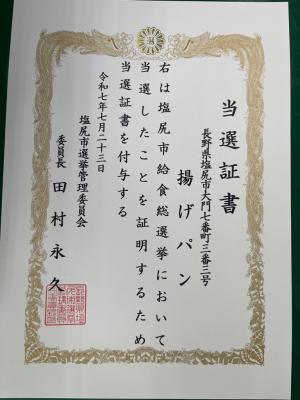 当選証書
長野県塩尻市大門七番町三番三号
揚げパン
右は塩尻市給食総選挙において
当選したことを証明するため
当選証書を付与する
令和七年七月二十三日
塩尻市選挙管理委員会
委員長 田村永久